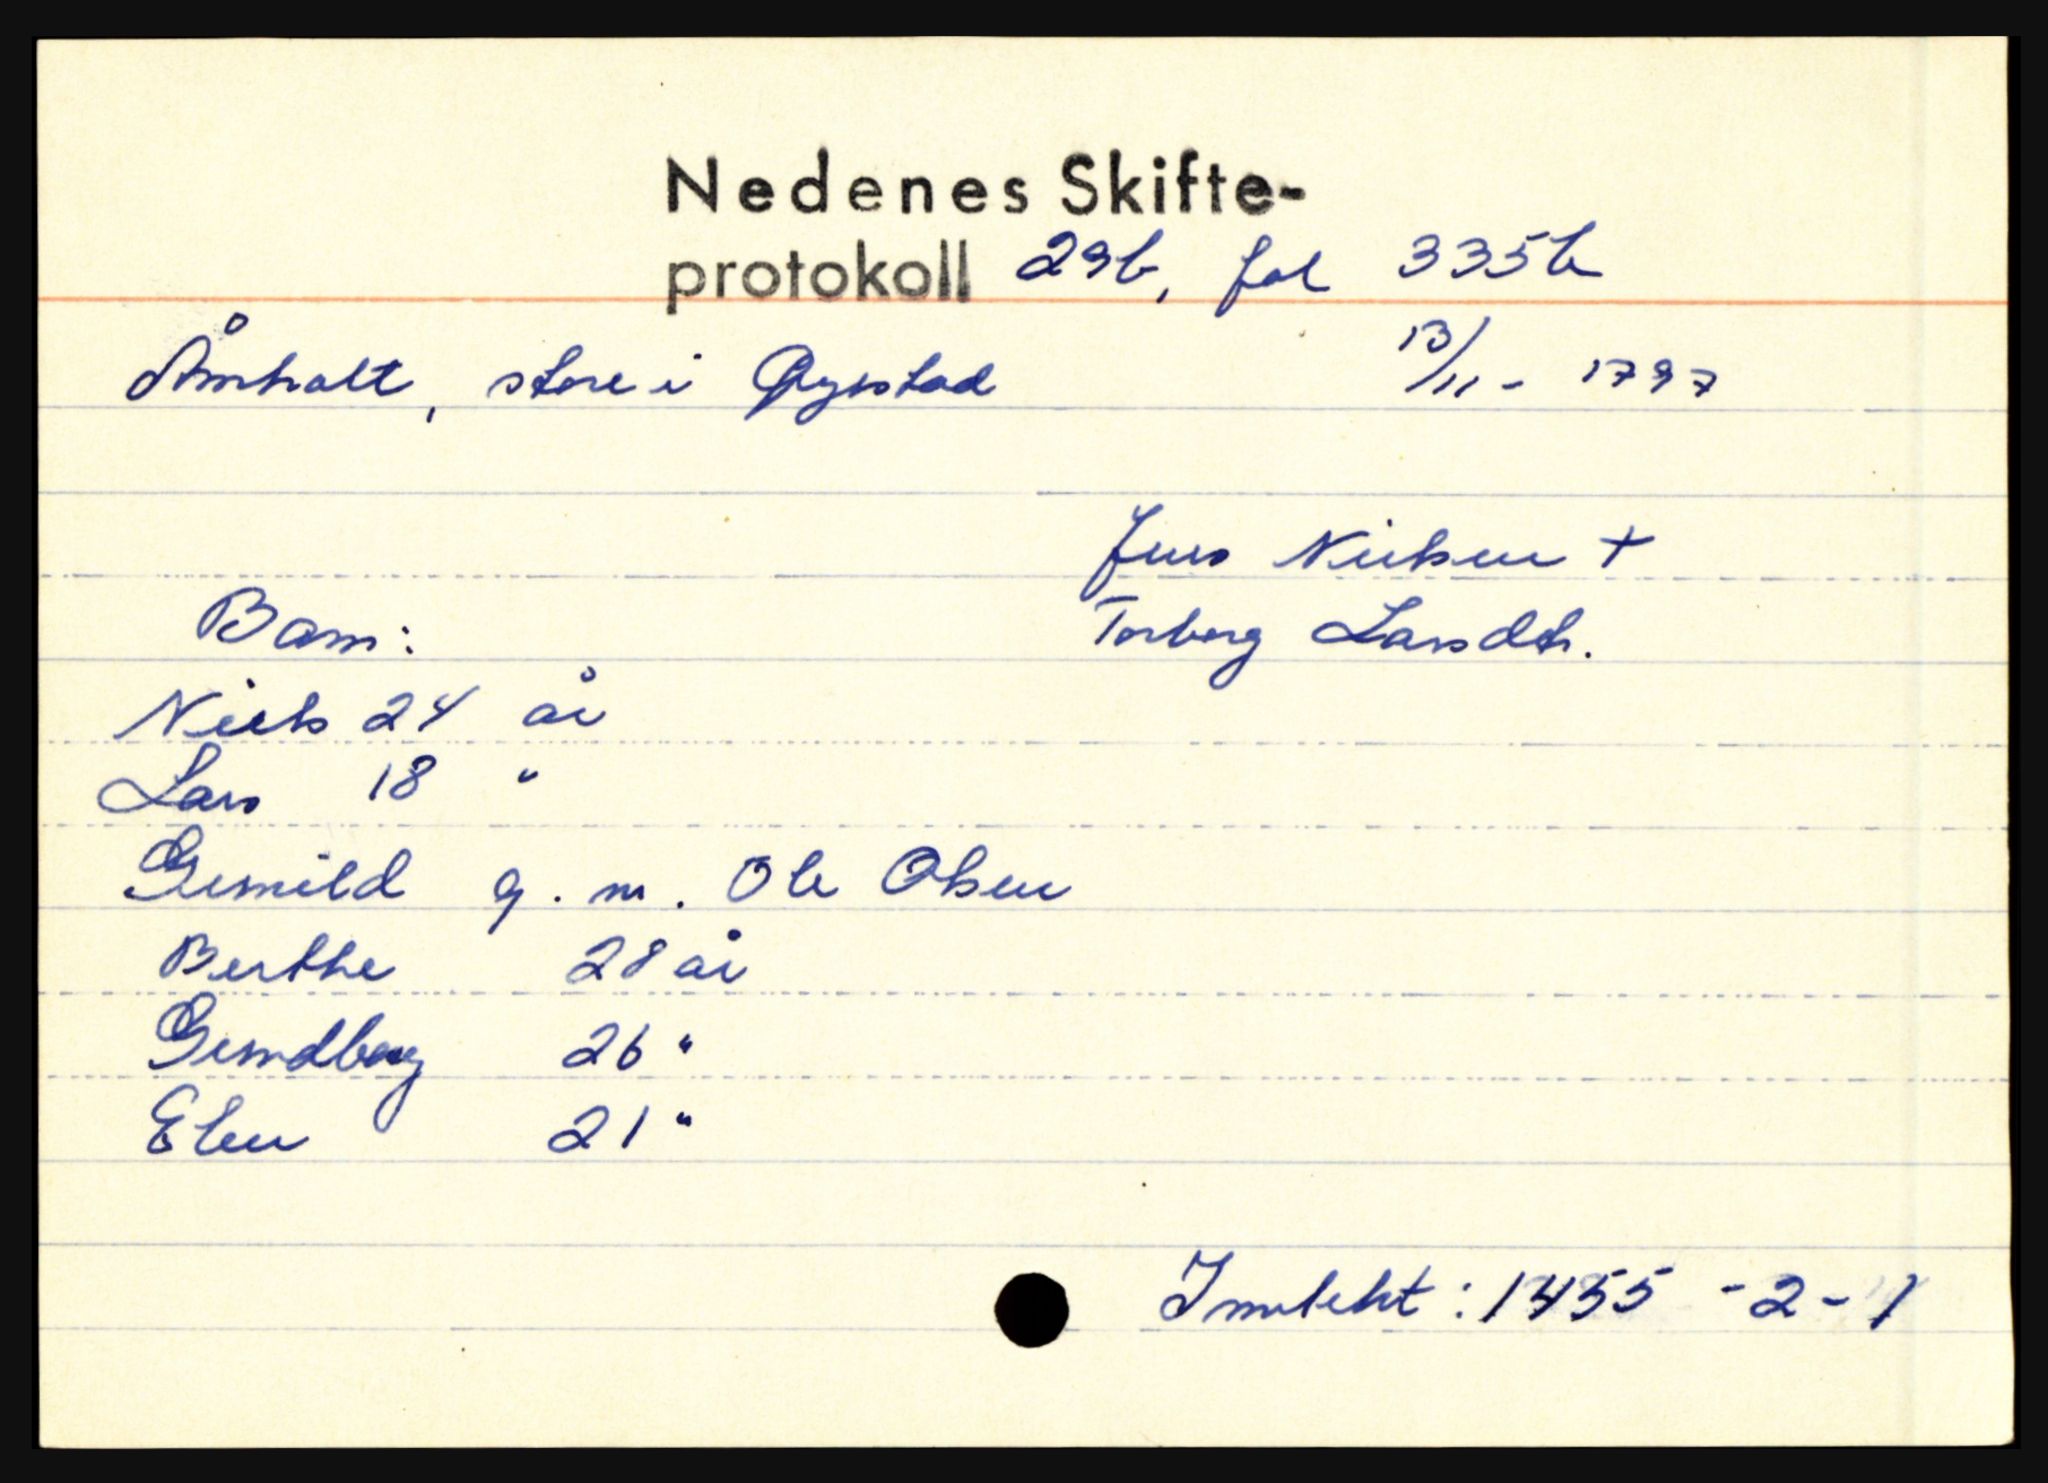 Nedenes Skifte-
protokoll 29b, fol 335b
Åmholt, store i Øyestad 13/11- 1797
Jens Nielsen +
Barn: Torborg Larsdtr.
Niels 24 år
Lars 18 "
Gunnild g. m. Ole Olsen
Berthe 28 år
Gundborg 26 "
Elen 21 "
Inntekt: 1455 - 2 - 1